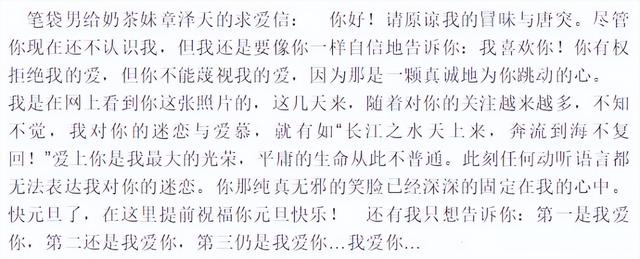 笔袋男给奶茶妹章泽天的求爱信： 你好！请原谅我的冒昧与唐突。尽管
你现在还不认识我，但我还是要像你一样自信地告诉你：我喜欢你！你有权
拒绝我的爱，但你不能蔑视我的爱，因为那是一颗真诚地为你跳动的心。
我是在网上看到你这张照片的，这几天来，随着对你的关注越来越多，不知
不觉，我对你的迷恋与爱慕，就有如“长江之水天上来，奔流到海不复
回！”爱上你是我最大的光荣，平庸的生命从此不普通。此刻任何动听语言都
无法表达我对你的迷恋。你那纯真无邪的笑脸已经深深的固定在我的心中。
快元旦了，在这里提前祝福你元旦快乐！ 还有我只想告诉你：第一是我爱
你，第二还是我爱你，第三仍是我爱你…我爱你…